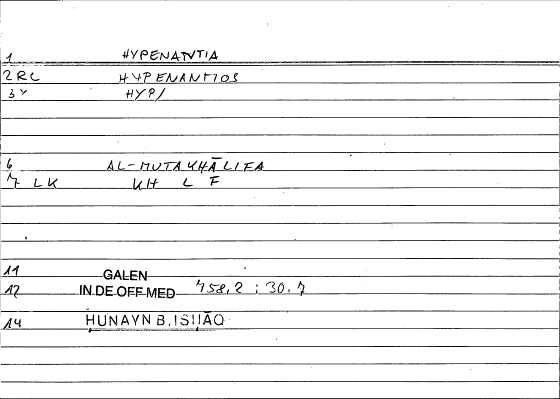 1 HYPENANTIA
2 RC HYPENANTIOS
3 Y HYP/
6 AL-MUTAKHĀLIFA
7 LK KH L F
11 GALEN
12 IN DE OFF MED 758,2 : 30.7
14 HUNAYN B. ISḤĀQ